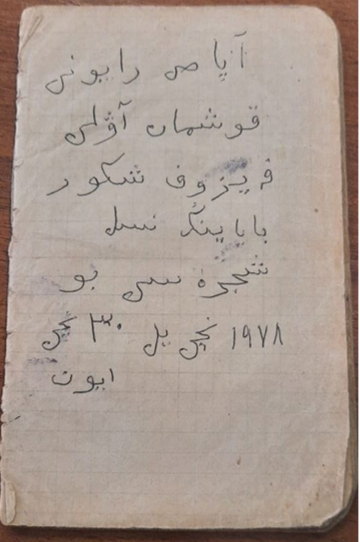 آپاص رایونی
قوشمان آولی
فیزوف شکور
باباینڭ نسل
شجره سی بو
١٩٧٨ نچی یل ٣٠ نچی
ایون